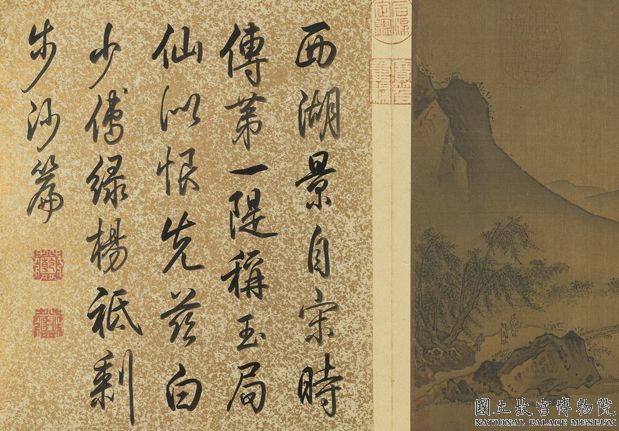 西湖景自宋時
傳第一隄稱玉局
仙似恨先茲白
少傅綠楊祗剩
步沙篇
國立故宮博物院
NATIONAL PALACE MUSEUM